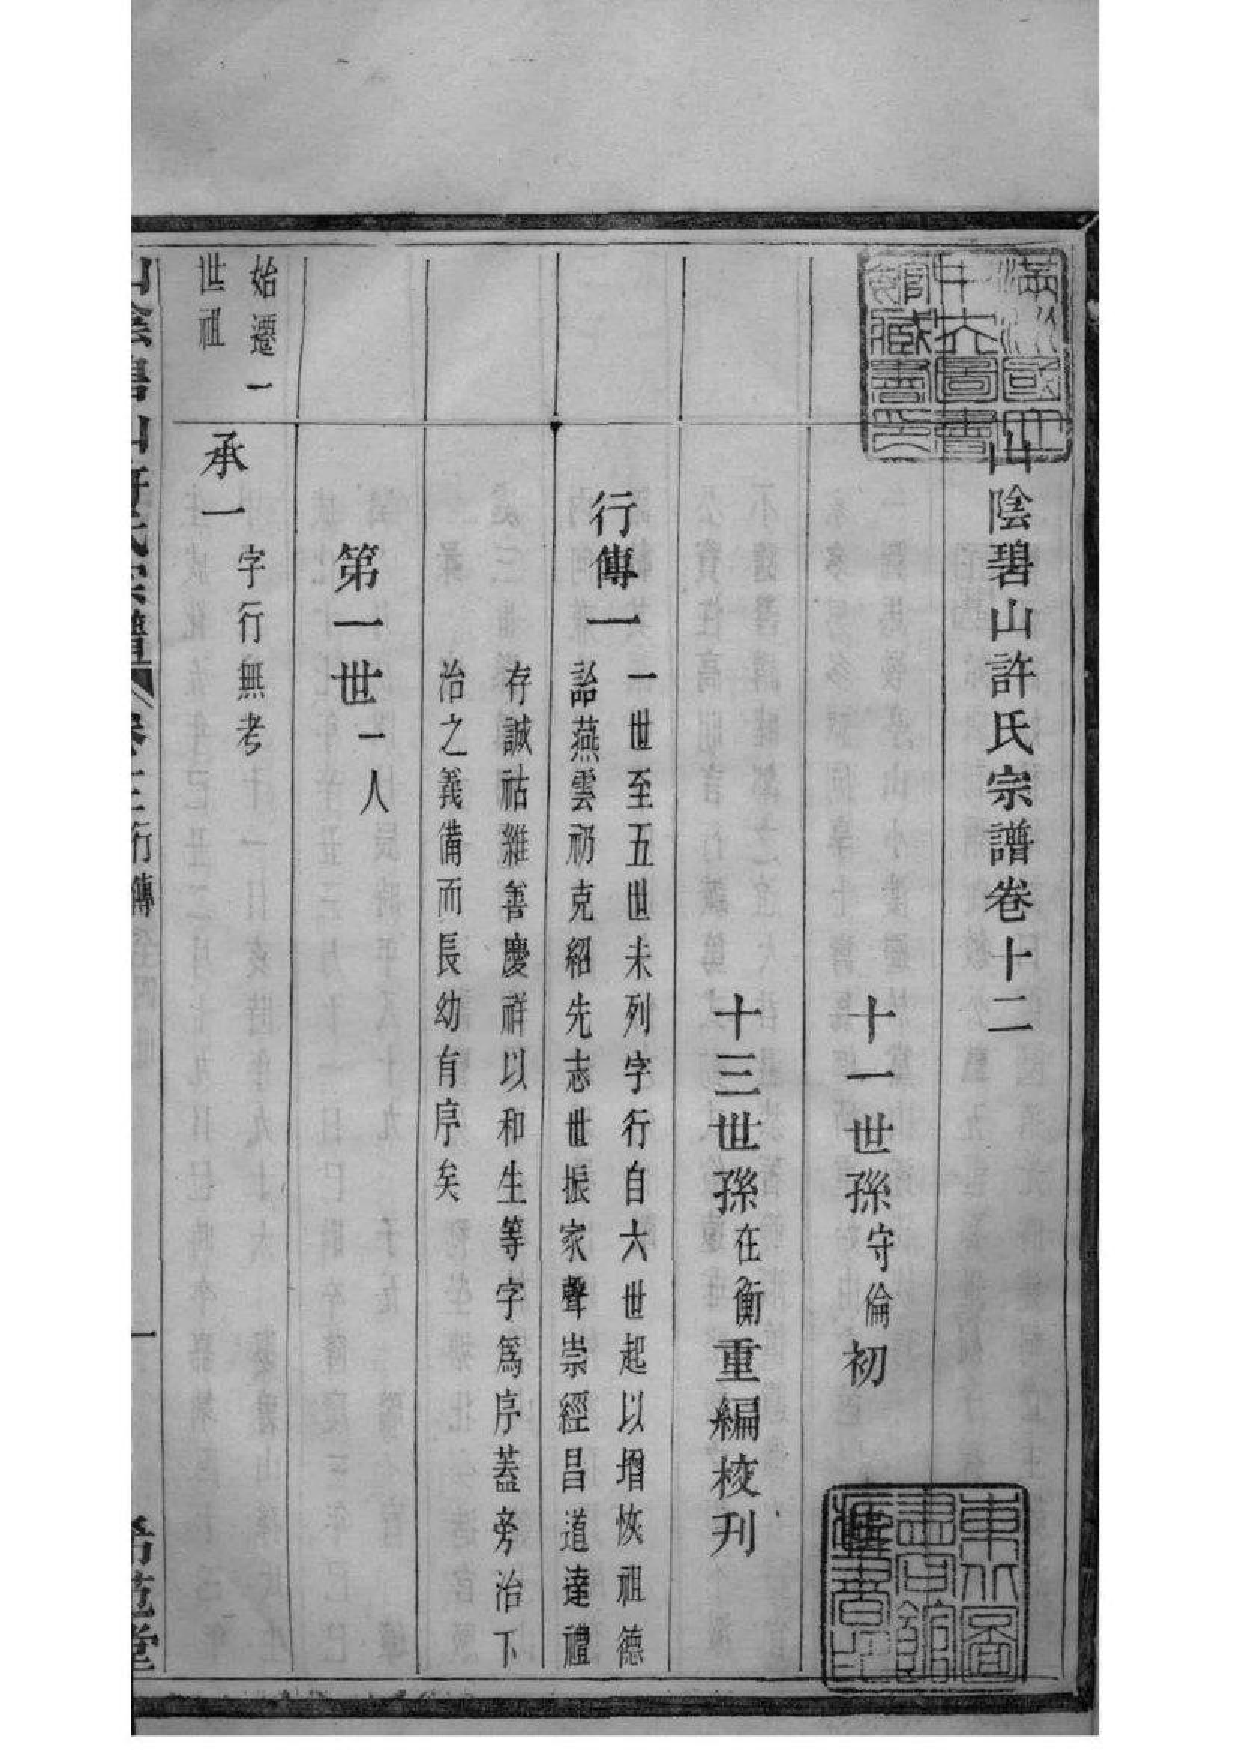 滿洲國立
中央圖書
館藏書之
山陰碧山許氏宗譜卷十二
十一世孫守倫初
十三世孫在衡重編校刊
東北圖
書館
藏書印
行傳一
一世至五世未列字行自六世起以增恢祖德
詒燕雲礽克紹先志世振家聲崇經昌道達禮
存誠祜雜善慶祥以和生等字為序蓋旁治下
治之義備而長幼有序矣
第一世一人
始遷一
世祖
承一
字行無考
山陰碧山許氏宗譜
卷十二行傳
一